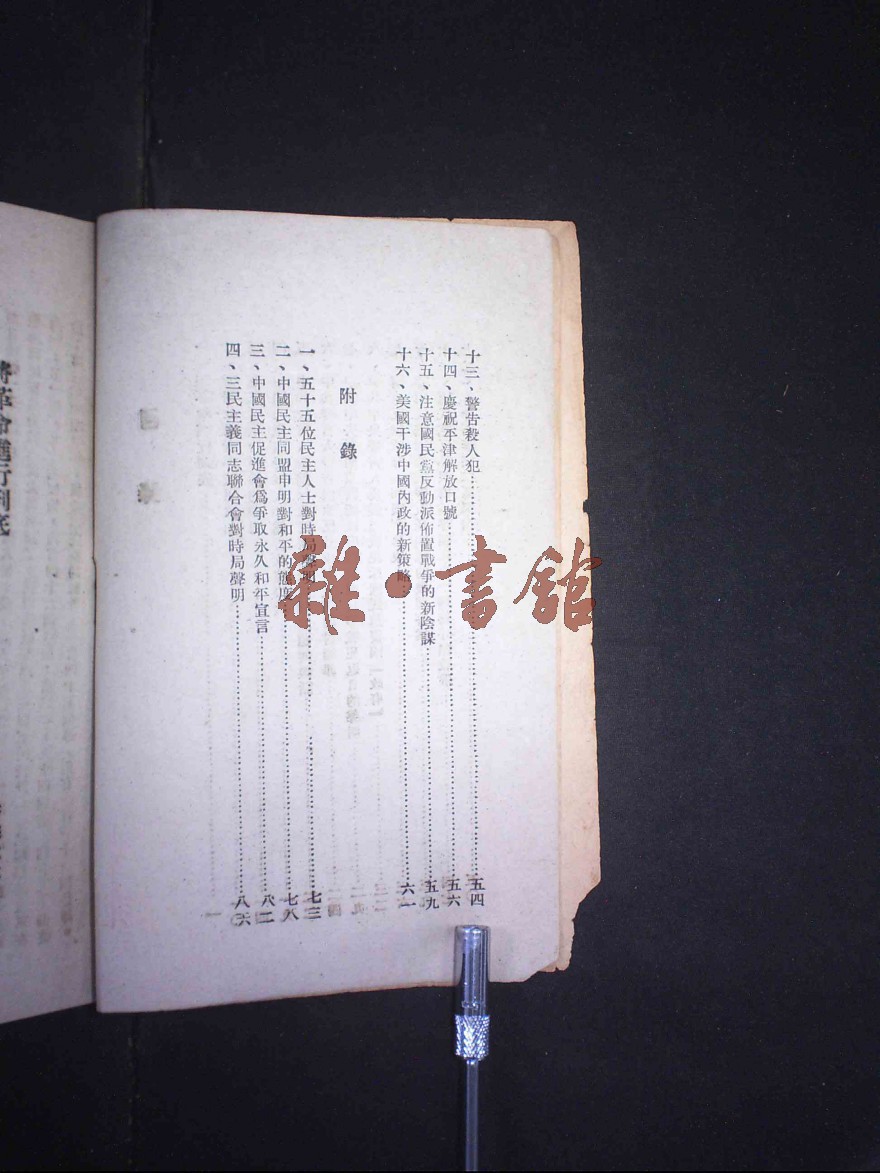 十三、警告殺人犯……五四
十四、慶祝平津解放口號……五六
十五、注意國民黨反動派佈置戰爭的新陰謀……五九
十六、美國干涉中國內政的新策略……六一
附錄
一、五十五位民主人士對時局聲明……七三
二、中國民主同盟申明對和平的態度……七八
三、中國民主促進會爲爭取永久和平宣言……八二
四、三民主義同志聯合會對時局聲明……八六
將革命進行到底
雜·書館